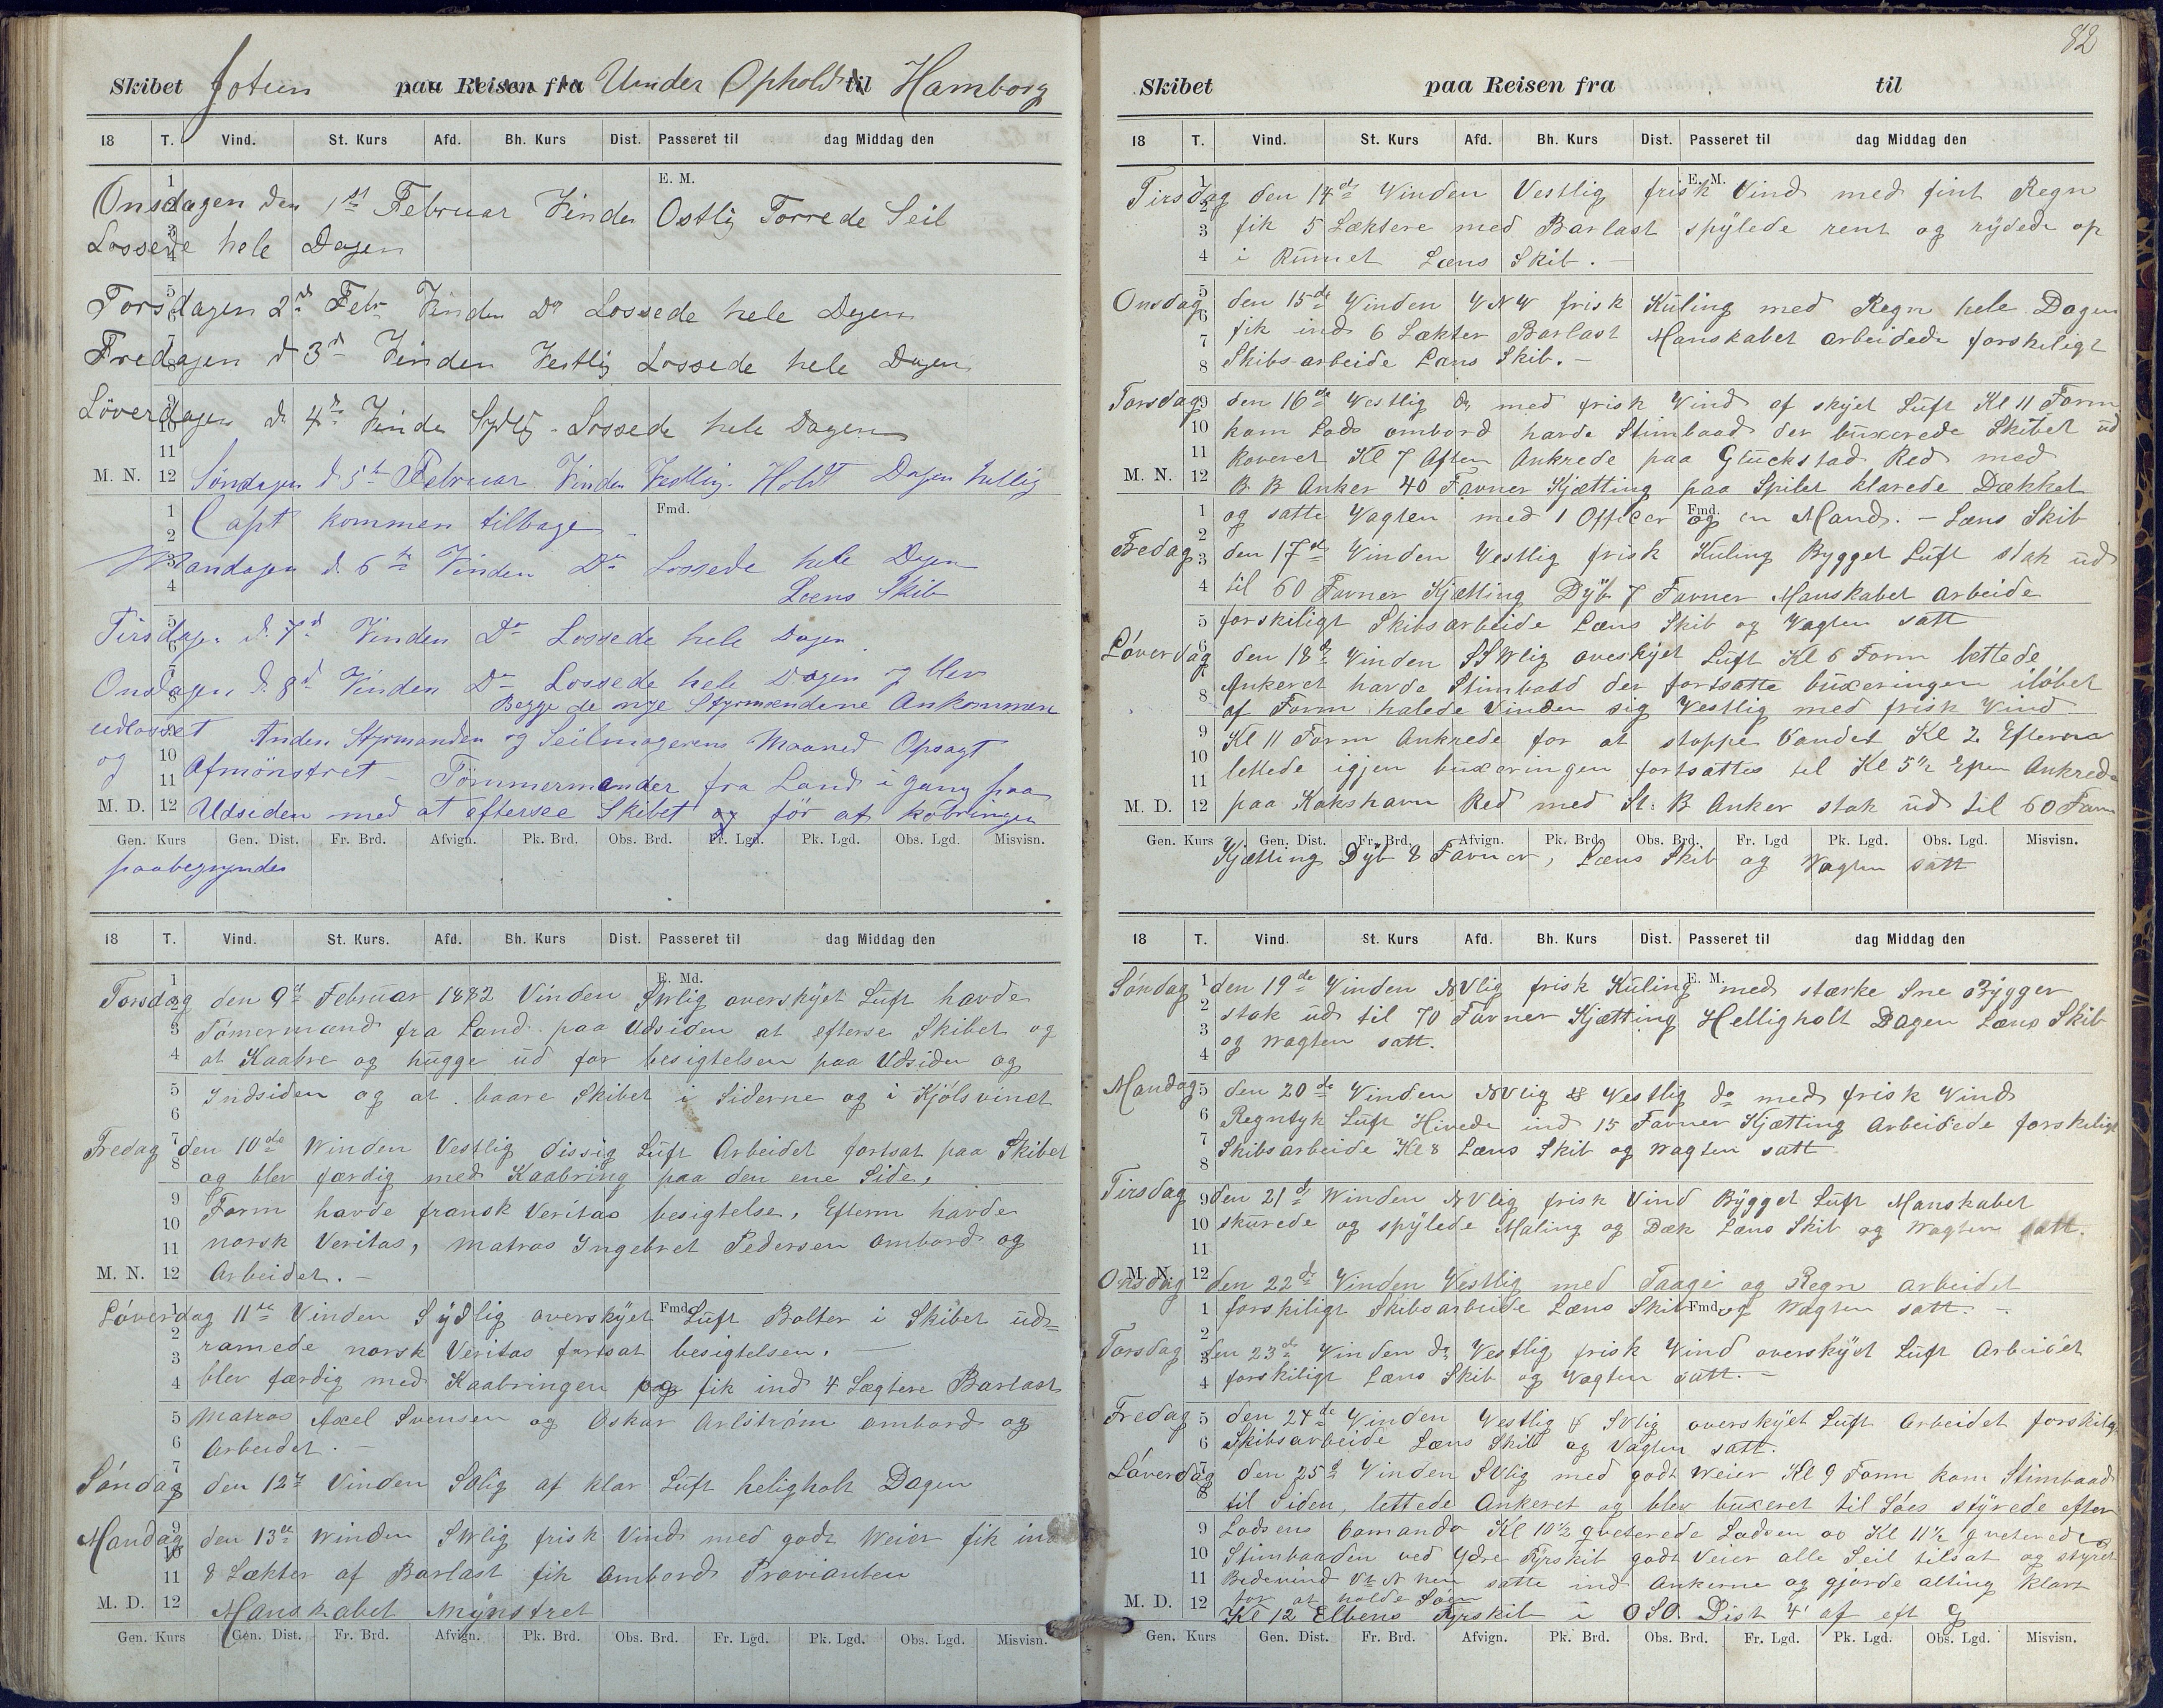 Skibet Jotun paa Reisen fra Under Ophold til Hamborg
18 T. Vind. St. Kurs Afd. Bh. Kurs Dist. Passeret til dag Middag den
E. M.
Onsdagen den 1st Februar Vinden Ostlig Torrede Seil
Lossede hele Dagen
Torsdagen 2d Febr Vinden Do Lossede hele Dagen
Fredagen d 3d Vinden Vestlig Lossede hele Dagen
Löverdagen d. 4de Vinden Sydlig - Lossede hele Dagen
M. N. 12 Søndagen d 5te Februar Vinden Vestlig. Holdt Dagen hellig
Fmd.
Capt kommen tilbage
Mandagen d. 6te Vinden Do Lossede hele Dagen
Læns Skib
Tirsdagen d. 7d Vinden Do Lossede hele Dagen
Onsdagen d. 8d Vinden Do Lossede hele Dagen og blev
Begge de nye Styrmændene Ankommen
udlosset Anden Styrmanden og Seilmagerens Maaned Opsagt
og Afmönstret - Tömmermænder fra Land i gang paa
M. D. 12 Udsiden med at efterse Skibet og för at kobringen
Gen. Kurs Gen. Dist. Fr. Brd. Afvign. Pk. Brd. Obs. Brd. Fr. Lgd. Pk. Lgd. Obs. Lgd. Misvisn.
paabegyndes
18 T. Vind. St. Kurs. Afd. Bh. Kurs Dist. Passeret til dag Middag den
E. Md.
Torsdag den 9de Februar 1882 Vinden SWlig overskyet Luft havde
Tömermænd fra Land paa Udsiden at efterse Skibet og
at Kaabre og hugge ud for besigtelsen paa Udsiden og
Indsiden og at baare Skibet i Siderne og i Kjölsvinet
Fredag den 10de Winden Vestlig dissig Luft Arbeidet fortsat paa Skibet
og blev færdig med Kaabring paa den ene Side,
Form havde fransk Veritas besigtelse, Efterm havde
norsk Veritas, Matros Ingebret Pedersen ombord og
M. N. 12 Arbeidet. -
Löverdag 11te Vinden Sydlig overskyet Fmd. Luft Bolter i Skibet ud=
ramede norsk Veritas fortsat besigtelsen.
blev færdig med Kaabringen og fik ind 4 Lægtere Barlast
Matros Axel Svensen og Oskar Arlström ombord og
Arbeidet. -
Söndag den 12te Vinden SVlig af klar Luft heligholt Dagen
Mandag den 13de Winden SWlig frisk Vind med godt Weier fik ind
8 Lækter af Barlast fik Ombord Provianten
M. D. 12 Manskabet Mynstret
Gen. Kurs Gen. Dist. Fr. Brd. Afvign. Pk. Brd. Obs. Brd. Fr. Lgd. Pk. Lgd. Obs. Lgd. Misvisn.
82
Skibet paa Reisen fra til
18 T. Vind. St. Kurs Afd. Bh. Kurs Dist. Passeret til dag Middag den
E. M.
Tirsdag den 14de Winden Vestlig frisk Vind med fint Regn
fik 5 Læktere med Barlast spylede rent og rydede op
i Rumet Læns Skib. -
Onsdag den 15de Winden VNV frisk Kuling med Regn hele Dagen
fik ind 6 Lækter Barlast Manskabet arbeidede forskeligt
Skibs-arbeide Læns Skib. -
Torsdag den 16de Vestlig do med frisk Vind af skyet Luft Kl 11 Form
kom Lods ombord havde Stimbaad der buxerede Skibet ud
Koveret Kl 7 Aften Ankrede paa Gluckstad Red med
M. N. 12 B B Anker 40 Favner Kjætting paa Spilet klarede Dækket
og satte Vagten med 1 Officer og en Mand. - Læns Skib
Fmd.
Fredag den 17de Winden Vestlig frisk Kuling Bygget Luft stak ud
til 60 Favner Kjætting Dyb 7 Favner Manskabet arbeide
forskiligt Skibsarbeide Læns Skib og Vagten satt
Löverdag den 18de Vinden SSWlig overskyet Luft Kl 6 Form lettede
Ankeret havde Stimbaad der fortsatte buxeringen ilöbet
af Form halede Vinden sig Vestlig med frisk Vind
Kl 11 Form Ankrede for at stoppe Vandet Kl 2 Efterm
lettede igjen buxeringen fortsattes til Kl 5½ Efter Ankrede
M. D. 12 paa Kokshavn Red med St: B Anker stak ud til 60 Favn
Gen. Kurs Gen. Dist. Fr. Brd. Afvign. Pk. Brd. Obs. Brd. Fr. Lgd Pk. Lgd. Obs. Lgd. Misvisn.
Kjætting Dyb 8 Favner, Læns Skib og Vagten satt
18 T. Vind. St. Kurs Afd. Bh. Kurs Dist. Passeret til dag Middag den
E. M.
Söndag den 19de Winden NVlig frisk Kuling med stærke Sne Bygger
stak ud til 70 Favner Kjætting Helligholt Dagen Læns Skib
og Wagten satt.
Mandag den 20de Winden NVlig & Vestlig do med frisk Vind
Regntyk Luft Hivede ind 15 Favner Kjætting Arbeidede forskeligt
Skibsarbeide Kl 8 Læns Skib og Wagten satt
Tirsdag den 21de Winden NVlig frisk Vind Bygget Luft Manskabet
skurede og spylede Maling og Dæk Læns Skib og Wagten satt.
M. N. 12
Onsdag den 22de Vinden Vestlig med Taage og Regn arbeidet
forskiligt Skibsarbeide Læns Skib Fmd. og Wagten satt. -
Torsdag den 23de Vinden do Vestlig frisk Vind overskyet Luft Arbeidet
forskiligt Læns Skib og Vagten satt. -
Fredag den 24de Winden Vestlig & SVlig overskyet Luft Arbeidet forskiligt
Skibsarbeide Læns Skib og Vagten satt.
Löverdag den 25de Vinden SVlig med godt Weier Kl 9 Form kom Stimbaad
til Siden, lettede Ankeret og blev buxeret til Söes styrede efter
Lodsens Comando Kl 10½ qveterede Lodsen og Kl 11½ qveterede
Stimbaaden ved Ydre Fyrskib godt Veier alle Seil tilsat og styret
Bidevind satte ind Ankerne og gjorde alting klart
for at holde Söen
M. D. 12 Kl 12 Elbens Fyrskib i OSO Dist 4' af
Gen. Kurs Gen. Dist. Fr. Brd. Afvign. Pk. Brd. Obs. Brd. Fr. Lgd. Pk. Lgd. Obs. Lgd. Misvisn.